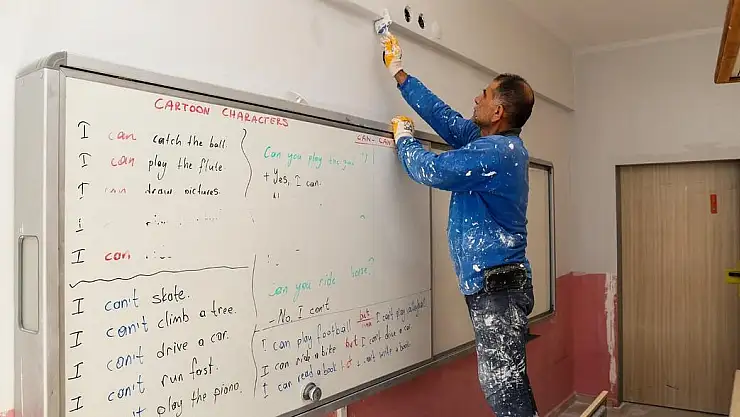 CARTOON CHARACTERS
I can catch the ball
I can play the flute.
I can draw pictures.
I
I can
I can't skate.
I can't climb a tree.
I can't drive a car.
I can't run fast.
play the piano.
CAN - CAN
Can you play the
+ Yes, I can.
Can you ride horse?
- No. I can't
I can play football but I can't play volleyball
I can ride a bike but I can't drive a car
I can read a book can't write a book.